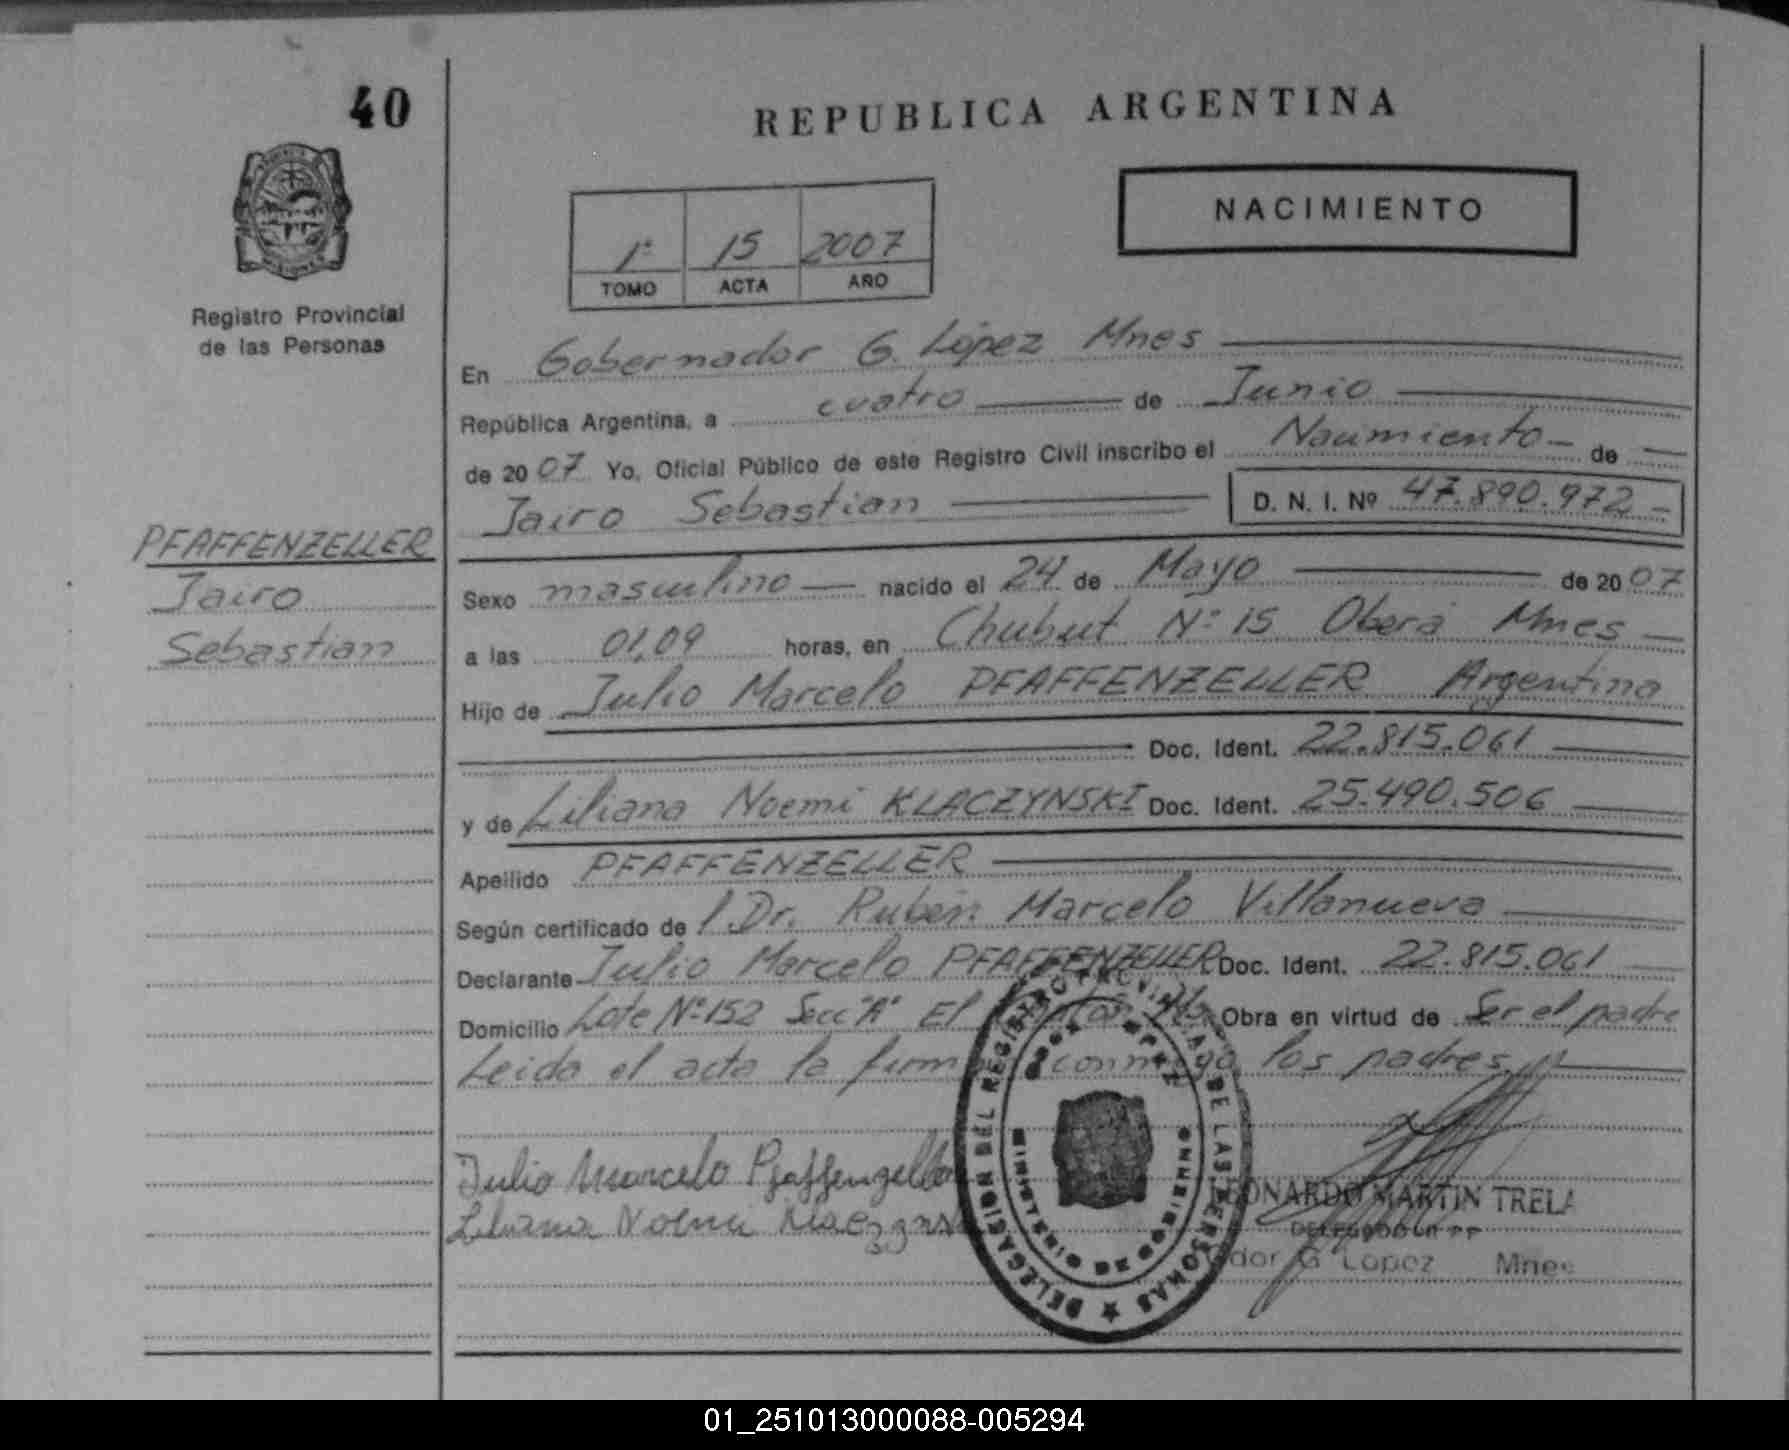 40
REPUBLICA ARGENTINA
NACIMIENTO
1º 15 2007
TOMO ACTA AÑO
Registro Provincial
de las Personas
En Gobernador G. López Mnes
República Argentina, a cuatro de Junio
de 2007 Yo, Oficial Público de este Registro Civil inscribo el Nacimiento de
Jairo Sebastian D. N. I. Nº 47.890.972
PFAFFENZELLER
Jairo
Sebastian
Sexo masculino nacido el 24 de Mayo de 2007
a las 01,09 horas, en Chubut Nº 15 Oberá Mnes
Hijo de Julio Marcelo PFAFFENZELLER Argentina
Doc. Ident. 22.815.061
y de Liliana Noemi KLACZYNSKI Doc. Ident. 25.490.506
Apellido PFAFFENZELLER
Según certificado de Dr. Ruben Marcelo Villanueva
Declarante Julio Marcelo PFAFFENZELLER Doc. Ident. 22.815.061
Domicilio Lote Nº 152 Secc "A" El Obra en virtud de Ser el padre
Leida el acta la firm conmigo los padres
Julio Marcelo Pfaffenzeller
Liliana Noemi
DELEGACION DEL REGISTRO PROVINCIAL DE LAS PERSONAS
LEONARDO MARTIN TRELA
DELEGADO
G Lopez Mnes
01_251013000088-005294